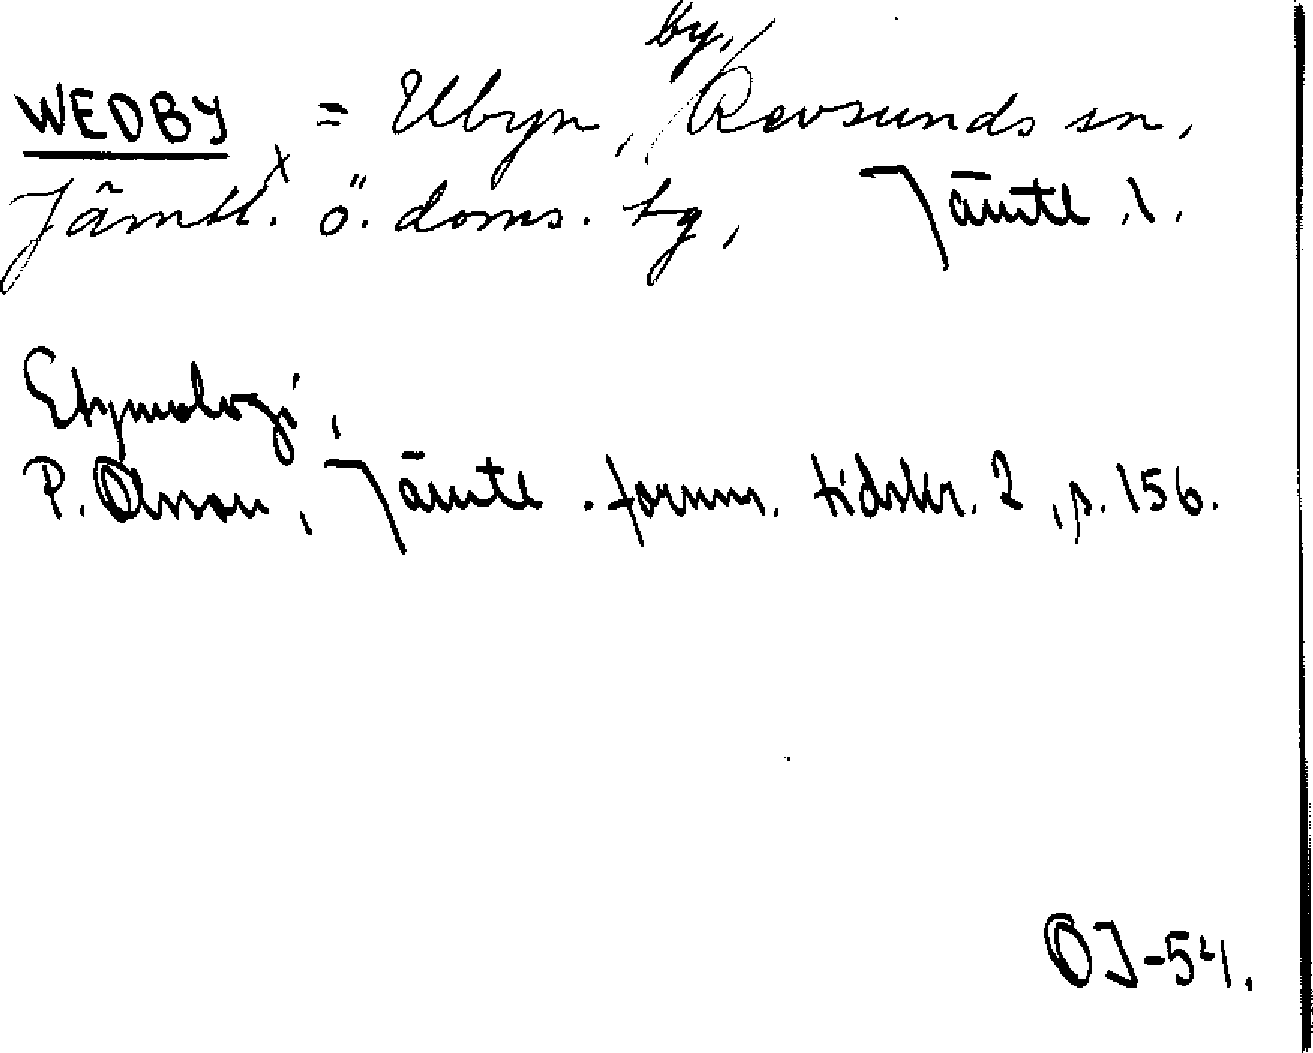 by,
WEDBY = Ubyn, Revsunds sn,
Jämtl. ö. doms. tg, Jämtl. l.
Etymologi,
P. Olsson, Jämtl. fornm. tidskr. 2, s. 156.
OJ-54.